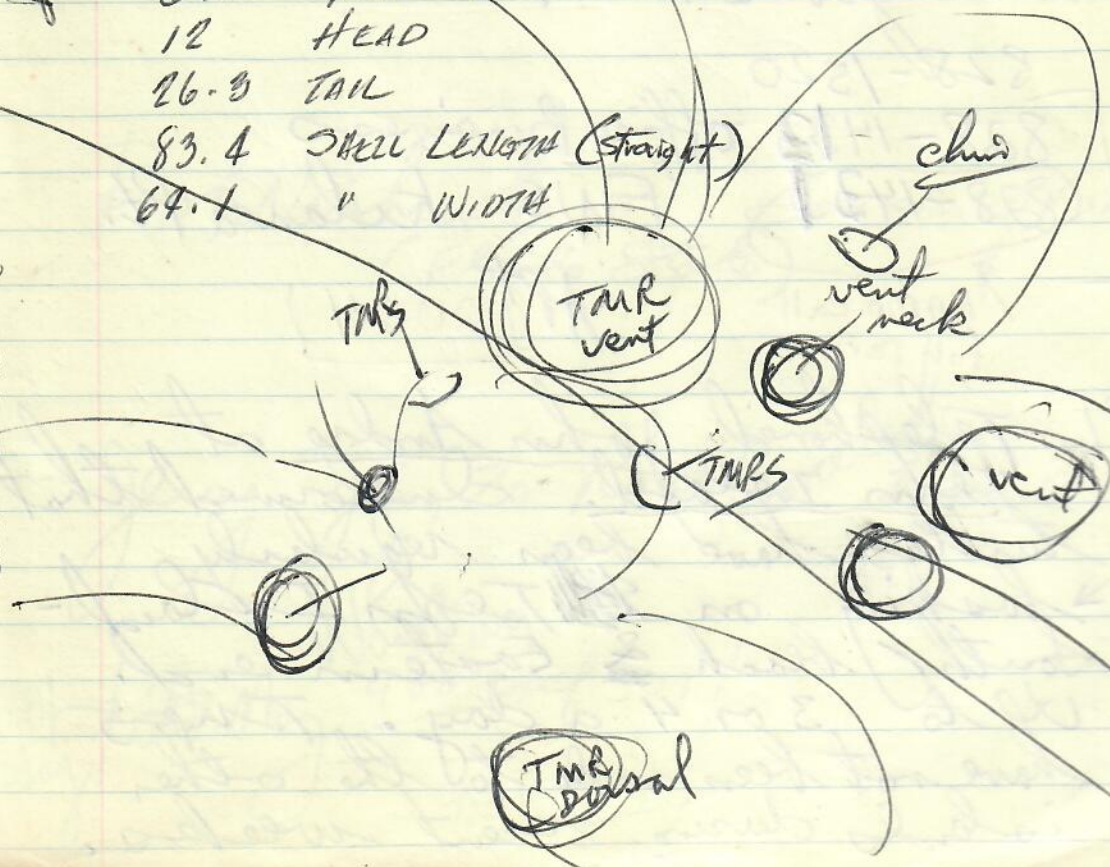 12 HEAD
26.3 TAIL
83.4 SHELL LENGTH (straight)
64.1 " WIDTH
chin
vent
neck
TMRS
TMR
vent
TMRS
vent
TMR
Dorsal